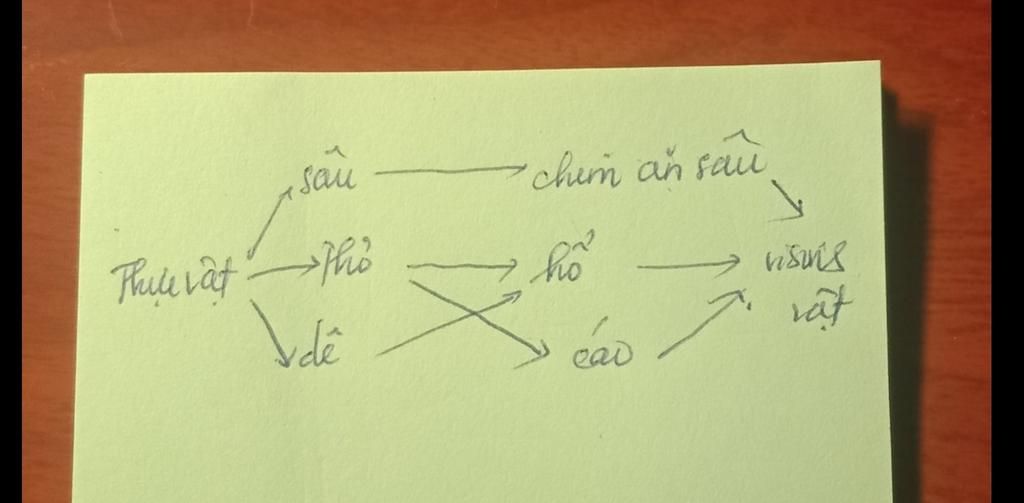 sâu chim ăn sâu
Thực vật Thỏ hổ visinh
vật
dê cáo